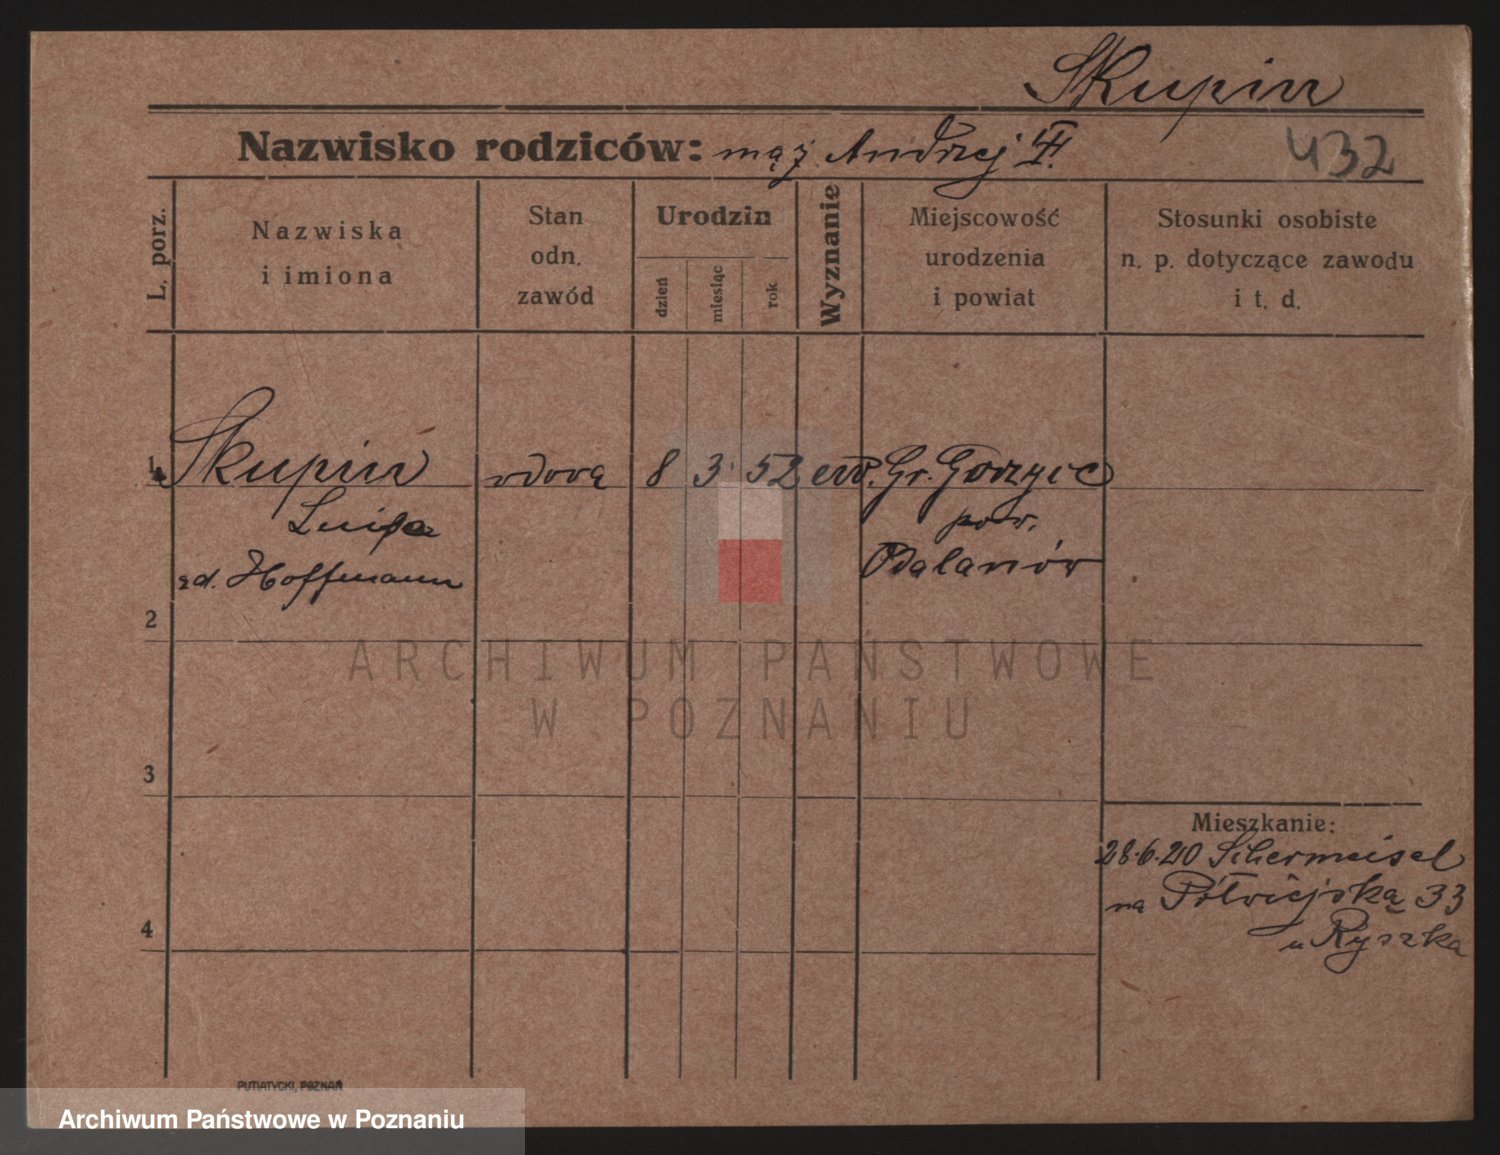 Skupin
Nazwisko rodziców: mąż Andrzej
432
L. porz.
Nazwiska
i imiona
Stan
odn.
zawód
Urodzin
dzień
miesiąc
rok
Wyznanie
Miejscowość
urodzenia
i powiat
Stosunki osobiste
n. p. dotyczące zawodu
i t. d.
1 Skupin wdowa 8 3 52 ew. Gr. Gorzyce
Luisa pow.
zd. Hoffmann Odalanów
2
ARCHIWUM PAŃSTWOWE
W POZNANIU
3
Mieszkanie:
28.6.20 Schermeisel
na Półwiejską 33
4
u Ryszka
PUTIATYCKI, POZNAŃ
Archiwum Państwowe w Poznaniu